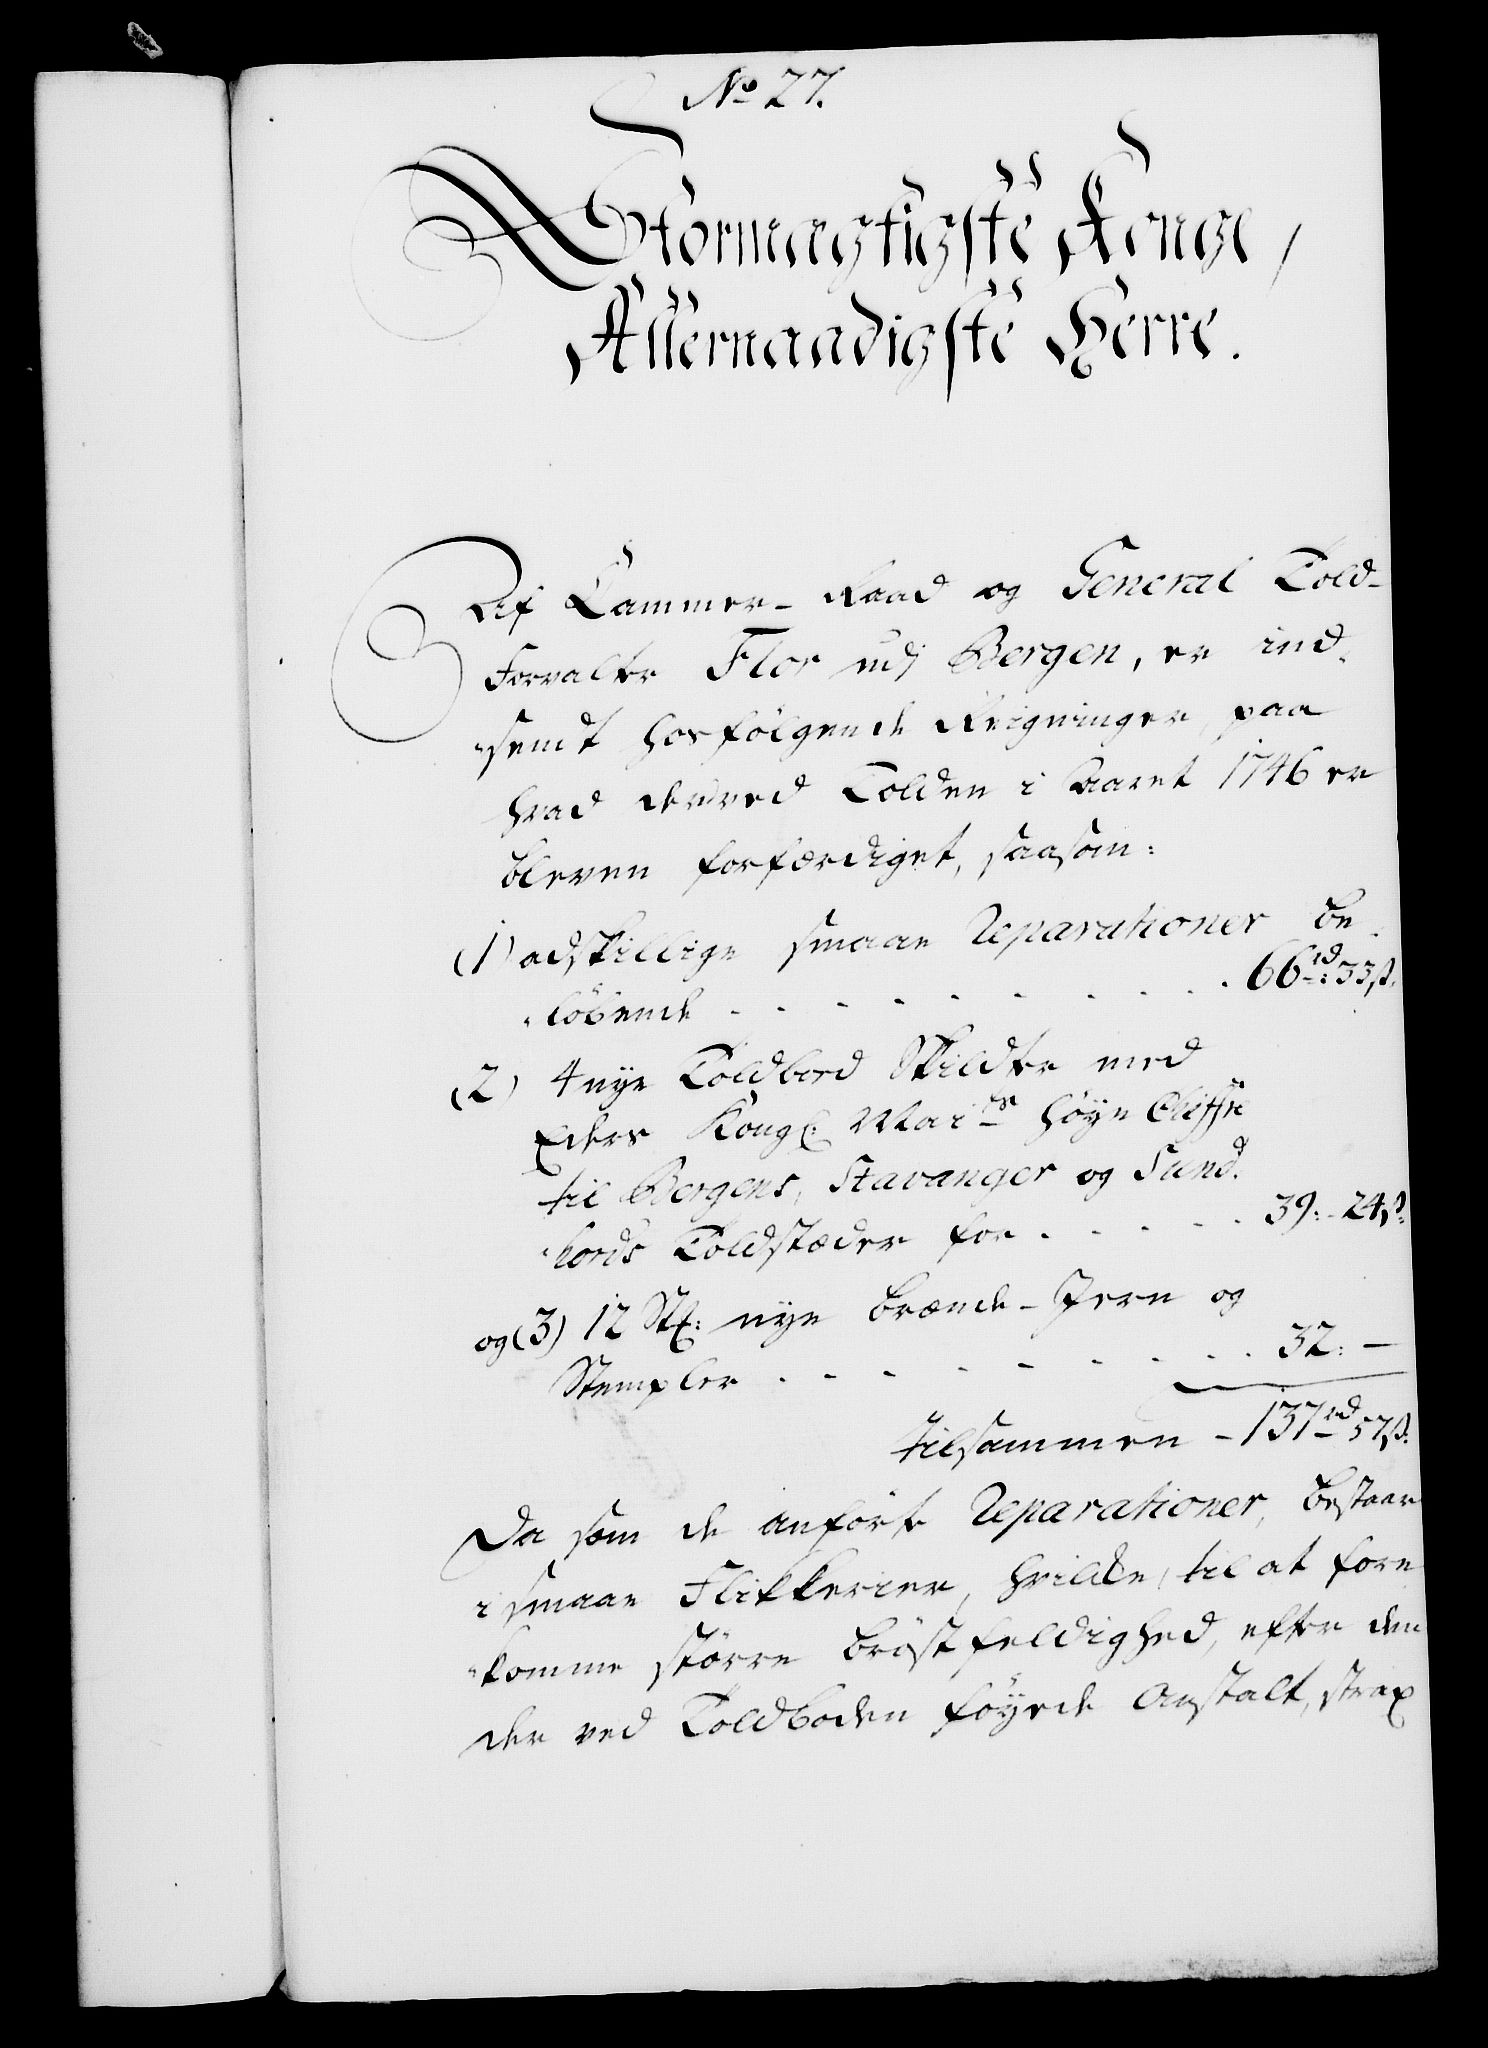 No 27.
Stormagtigste Konge,
Allernaadigste Herre.
Af Cammer-Raad og General Told-
Forvalter Flor udj Bergen, er ind-
sendt hosfølgende Reigninger, paa
hvad derved Tolden i Aaret 1746 er
bleven forfærdiget, saasom:
(1) adskillige smaae Reparationer be-
løbende . . . . . . . . . 66rd: 33ß.
(2) 4 nye Toldbod Skildter med
Eders Kongl: Maits høye Chiffre
til Bergens, Stavanger og Sund-
hords Toldstæder for . . . . . 39: - 24ß:
og (3) 12 Stk: nye Brænde-Jern og
Stempler . . . . . . . . 32: -
tilsammen - 137rd 57ß.
Da som de anførte Reparationer, bestaar
i smaae Flikkerier, hvilke, til at fore-
komme større Brøstfeldighed, efter den
der ved Toldboden føyede Anstalt, strax